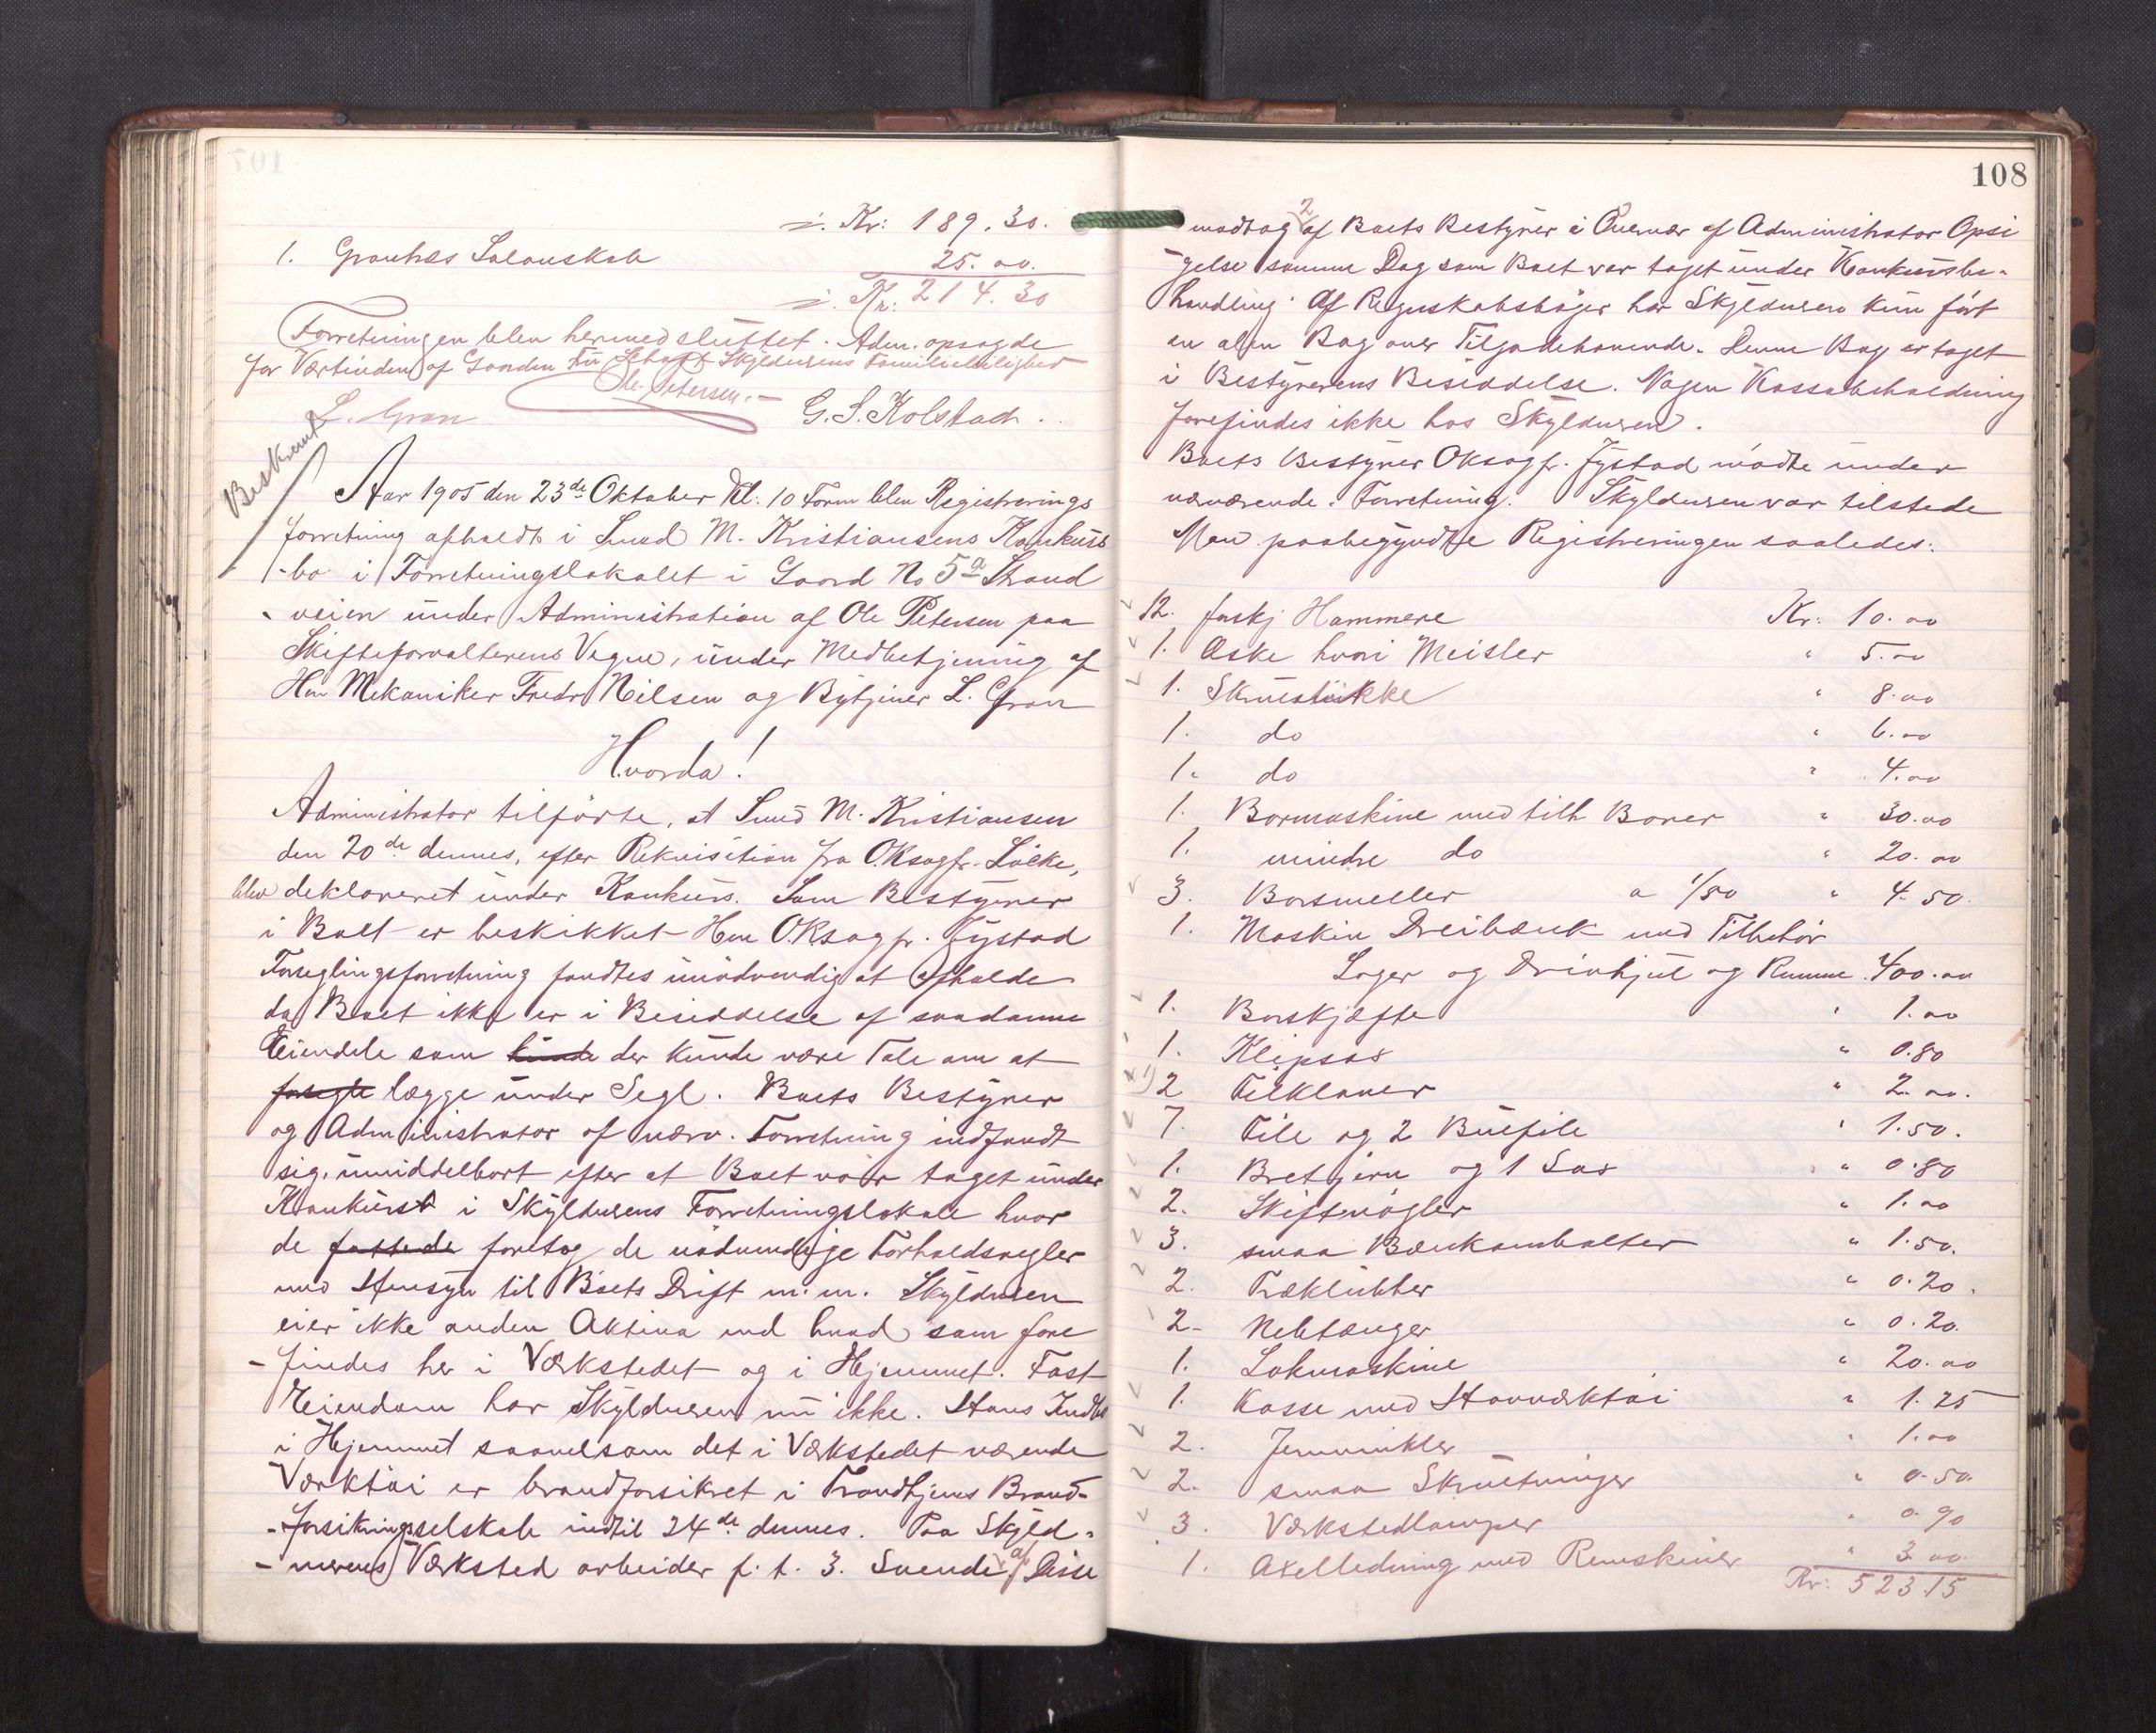 ÷. Kr: 189.30.
1. Grantræs Salonskab 25.00.
÷. Kr: 214.30
Forretningen blev hermed sluttet. Adm. opsagde
for Værtinden af Gaarden Skyldnerens Familieleilighed
Ole Petersen.
L. Gran G. S. Kolstad.
Beskremt
Aar 1905 den 23de Oktober Kl: 10 Form blev Registrerings
forretning afholdt i Smed M. Kristiansens Konkurs
-bo i Forretningslokalet i Gaard No 5a Strand
-veien under Administration af Ole Petersen paa
Skifteforvalterens Vegne, under Medbetjening af
Hrr Mekaniker Fredr Nilsen og Bytjener L. Gran
Hvorda!
Administrator tilførte, at Smed M. Kristiansen
den 20de dennes, efter Rekvisition fra O.Ksagfr. Löcke,
blev deklareret under Konkurs. Som Bestyrer
i Boet er beskikket Hrr O.Ksagfr. Jystad
Forseglingsforretning fandtes unødvendig at afholde
da Boet ikke er i Besiddelse af saadanne
Eiendele som kunde der kunde være Tale om at
forsegle lægge under Segl. Boets Bestyrer
og Administrator af nærv. Forretning indfandt
sig umiddelbart efter at Boet var taget under
Konkurs i Skyldnerens Forretningslokale hvor
de fattede foretog de nødvendige Forholdsregler
med Hensyn til Boets Drift m.m. Skyldneren
eier ikke anden Aktiva end hvad som fore
-findes her i Værkstedet og i Hjemmet. Fast
Eiendom har Skyldneren nu ikke. Hans Indbo
i Hjemmet saavelsom det i Værkstedet værende
Værktøi er brandforsikret i Trondhjems Brand-
-forsikringsselskab indtil 24de dennes. Paa Skyld-
-nerens Værksted arbeider f. t. 3. Svende, af Disse
108
modtog 2 af Boets Bestyrer i Overvær af Administrator Opsi
gelse samme Dag som Boet var taget under Konkursbe-
handling. Af Regnskabsbøger har Skyldneren kun ført
en alm Bog over Tilgodehavende. Denne Bog er taget
i Bestyrerens Besiddelse. Nogen Kassabeholdning
forefindes ikke hos Skyldneren.
Boets Bestyrer Oksagfr. Jystad mødte under
nærværende Forretning. Skyldneren var tilstede
Man paabegyndte Registreringen saaledes:
12. forskj Hammere Kr: 10.00
1. Æske hvori Meisler " 5.00
1. Skruestükke " 8.00
1. do " 6.00
1. do " 4.00
1. Bormaskine med tilh Borer " 30.00
1. mindre do " 20.00
3. Borsmeller a 1/50 " 4.50.
1. Maskin Dreibænk med Tilbehör
Lager og Drivhjul og Remme 400.00
1. Borskjæfte " 1.00
1. Klipsax " 0.80
2 Filklaver " 2.00.
7. File og 2 Buefile " 1.50.
1. Bretjern og 1 Sax " 0.80
2. Skiftnøgler " 1.00
3. smaa Bænkambolter " 1.50.
2. Træklubber " 0.20.
2- Nebtænger " 0.20.
1. Lokmaskine " 20.00
1. Kasse med Haandværktøi " 1.25
2. Jernvinkler " 1.00
2. smaa Skruetvinger " 0.50
3. Værkstedlamper " 0.90
1. Axelledning med Remskiver " 3.00
Kr: 523.15